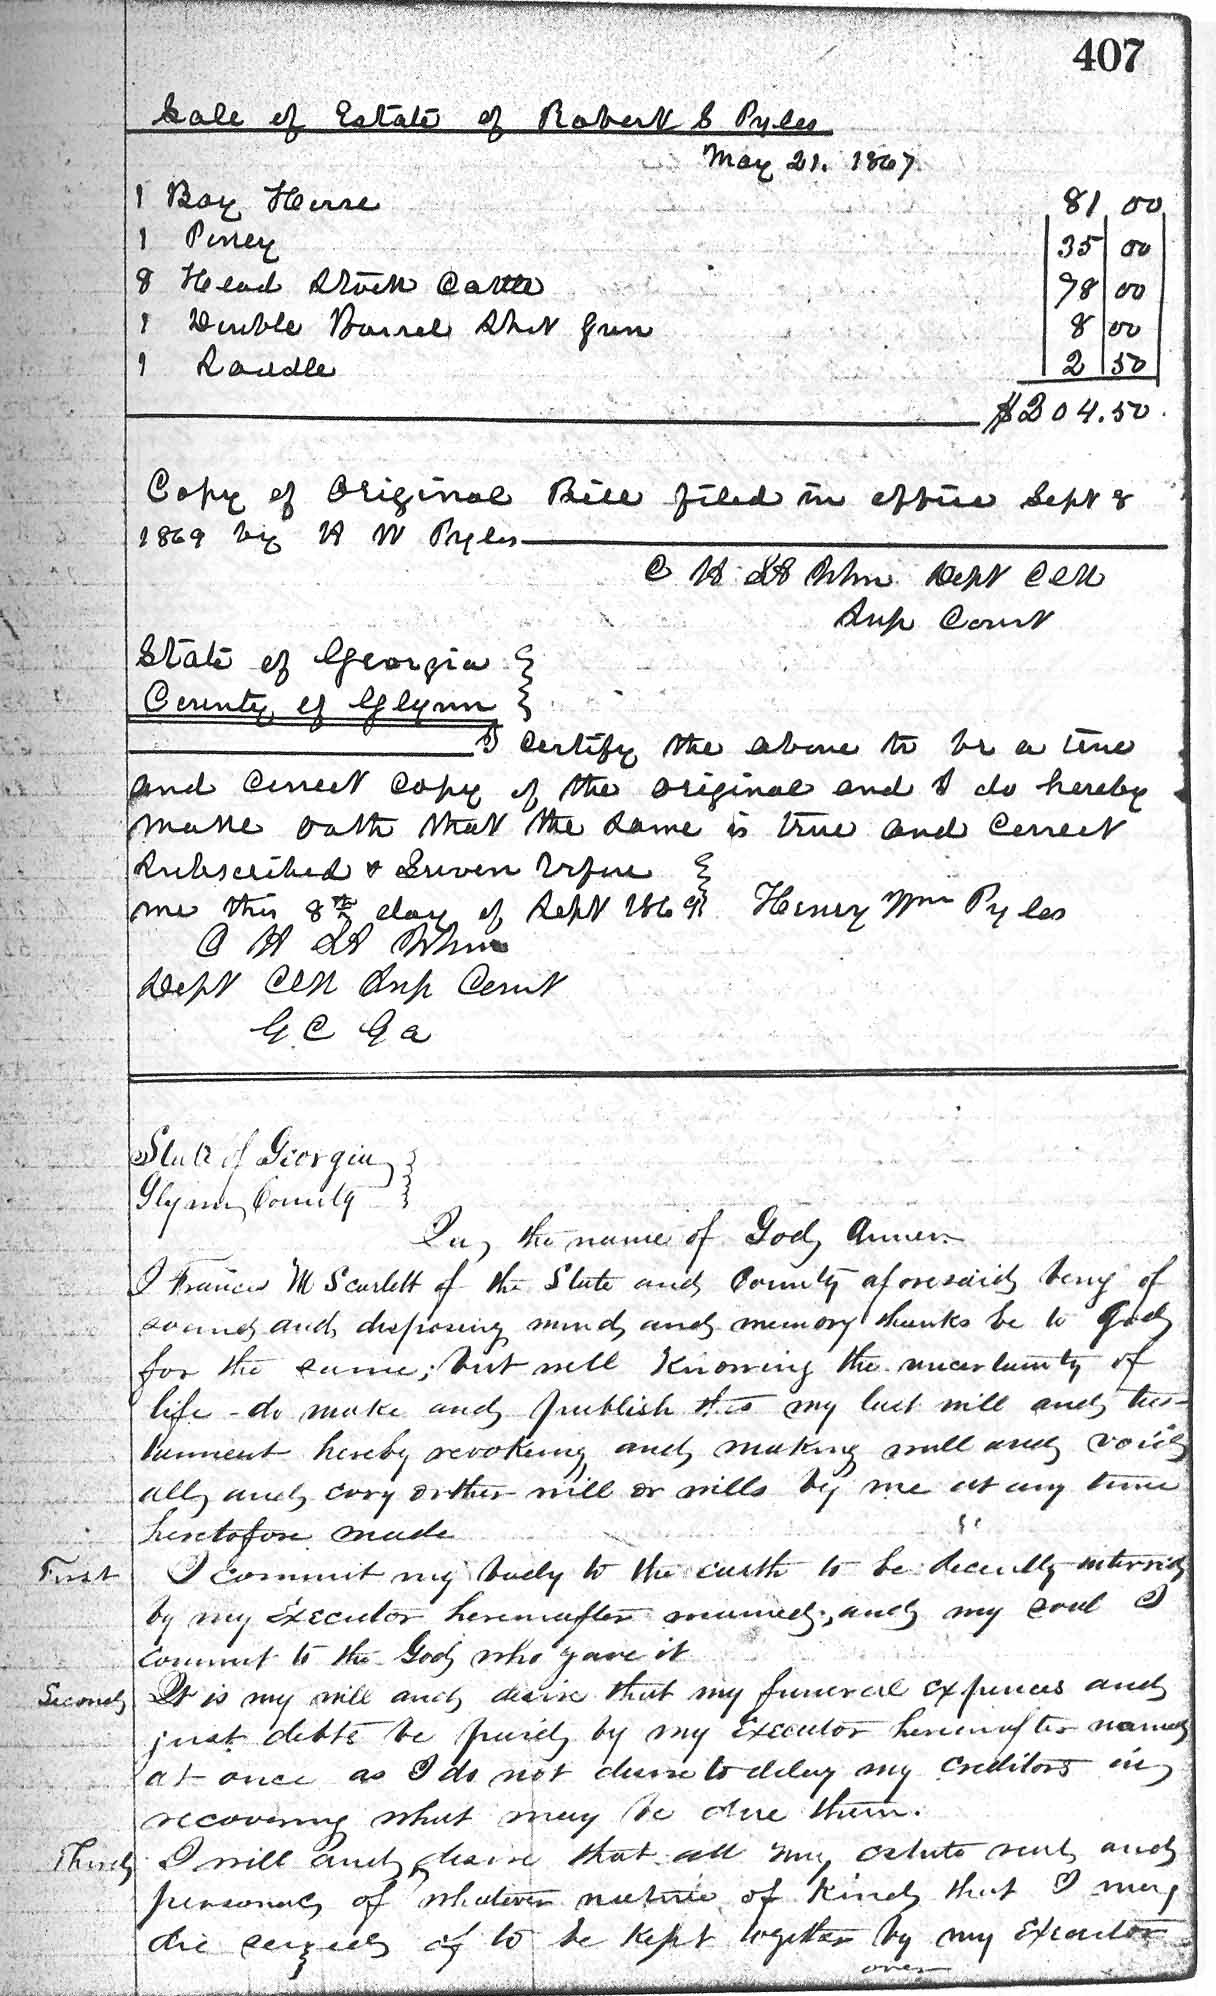 407
Sale of Estate of Robert S Pyles
May 21. 1867
1 Bay Horse 81 00
1 Poney 35 00
8 Head Stock Cattle 78 00
1 Double Barrel Shot Gun 8 00
1 Saddle 2 50
$204.50
Copy of Original Bill filed in office Sept 8
1869 by H W Pyles
C H Dept Clk
Sup Court
State of Georgia
County of Glynn
I certify the above to be a true
and correct copy of the original and I do hereby
make oath that the same is true and correct
Subscribed & Sworn before
me this 8th day of Sept 1869 Henry Wm Pyles
C H
Dept Clk Sup Court
G C Ga
State of Georgia
Glynn County
In the name of God Amen
I Francis M Scarlett of the State and County aforesaid being of
sound and disposing mind and memory thanks be to God
for the same; but well knowing the uncertainty of
life - do make and publish this my last will and tes-
tament hereby revoking and making null and void
all and every other will or wills by me at any time
heretofore made
First I commit my body to the earth to be decently interred
by my Executor hereinafter named, and my soul I
commit to the God who gave it
Second It is my will and desire that my funeral expences and
just debts be paid by my Executor hereinafter named
at once as I do not desire to delay my creditors in
recovering what may be due them.
Third I will and desire that all my estate real and
personal of whatever nature of kind that I may
die seized of to be kept together by my Executor
over